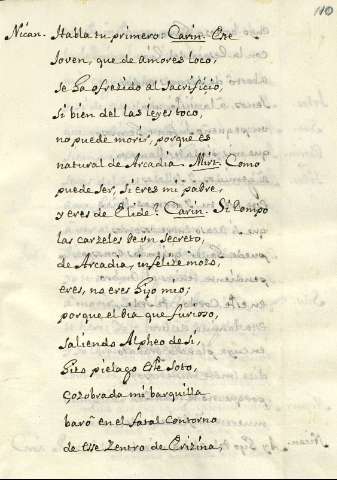 110
Nican. Habla tu primero. Carin. Este
Joven, que de amores loco,
se ha ofrezido al sacrificio,
si bien del las leyes toco,
no puede morir, porque es
natural de Arcadia. Mirt. Como
puede ser, si eres mi padre,
y eres de Elide? Carin. Si rompo
las carzeles de vn secreto,
de Arcadia, infelize mozo,
eres, no eres hijo mio;
porque el dia que furioso,
saliendo Alpheo de si,
hizo pielago este soto,
çozobrada mi barquilla
barò en el fatal contorno
de esse Zentro de Erizina,